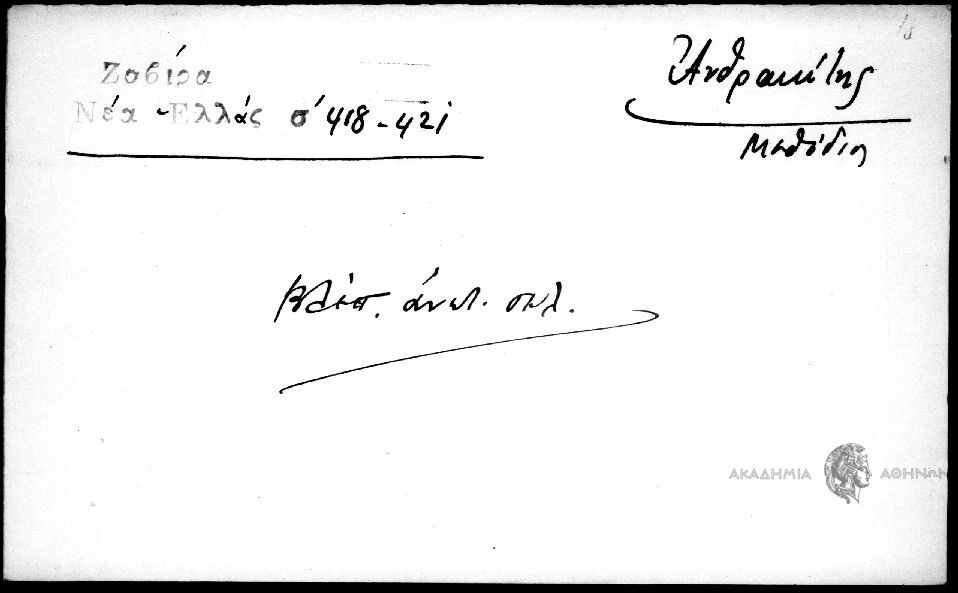 Ζαβίρα
Νέα Ἑλλάς σ' 418-421
Ἀνθρακίτης
Μεθόδιος
βλέπ. ἀνωτ. σελ.
ΑΚΑΔΗΜΙΑ ΑΘΗΝΩΝ